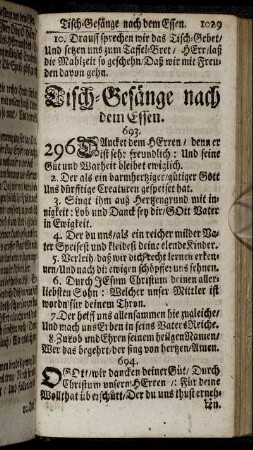 Tisch-Gesänge nach dem Essen. 1029
10. Drauff sprechen wir das Tisch-Gebet/
Und setzen uns zum Taffel-Bret/ HErr/laß
die Mahlzeit so geschehn/Daß wir mit Freu-
den davon gehn.
Tisch-Gesänge nach
dem Essen.
693.
296 DAncket dem HErren/ denn er
ist sehr freundlich: Und seine
Güt und Warheit bleibet ewiglich.
2. Der als ein barmhertziger/gütiger Gott
Uns dürfftige Creaturen gespeiset hat.
3. Singt ihm auß Hertzengrund mit in-
nigkeit: Lob und Danck sey dir/GOtt Vater
in Ewigkeit.
4. Der du uns/als ein reicher milder Va-
ter Speisest und kleidest deine elende Kinder.
5. Verleih/daß wir dich recht lernen erken-
nen/Und nach dir ewigen schöpffer uns sehnen.
6. Durch JEsum Christum deinen aller-
liebsten Sohn: Welcher unser Mittler ist
wordn für deinem Thron.
7. Der helff uns allensammen hie zugleiche/
Und mach uns Erben in seins Vaters Reiche.
8. Zu Lob und Ehren seinem heilgen Namen/
Wer das begehrt/der sing von hertzen/Amen.
694.
O GOtt/wir dancken deiner Güt/ Durch
Christum unsern HErren /: Für deine
Wolthat überschütt/Der du uns thust erneh-
ren.